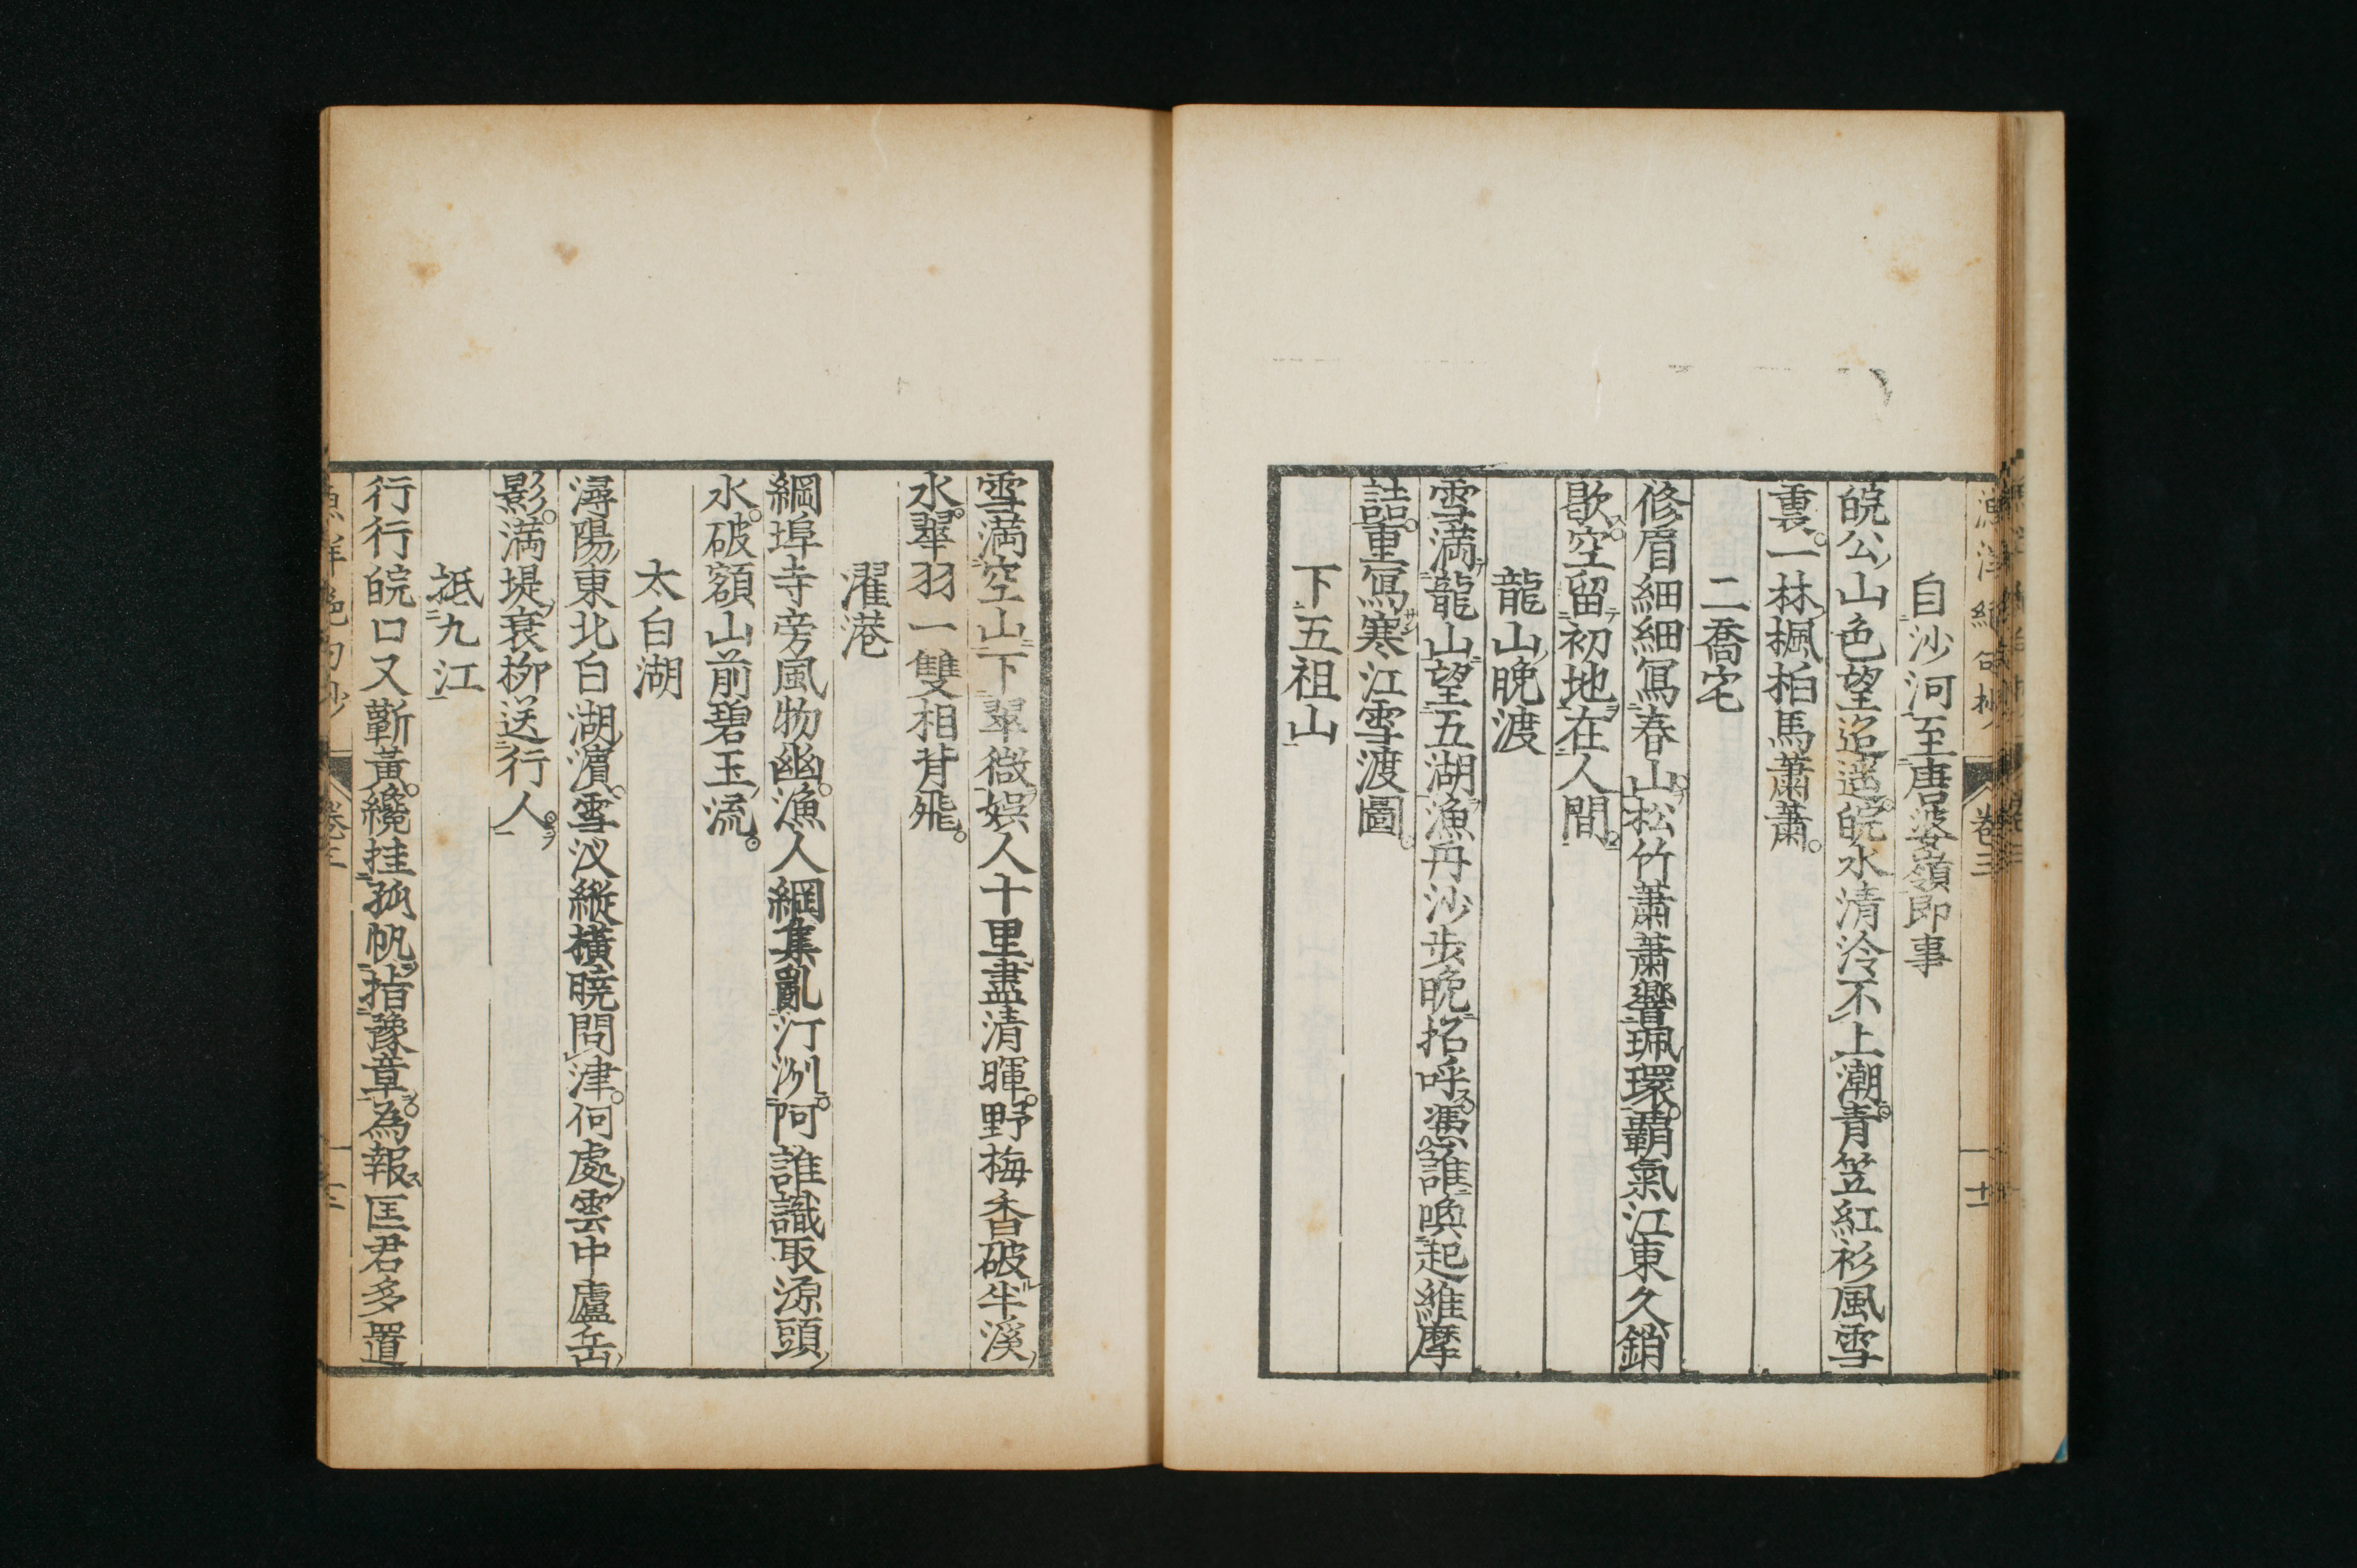 自沙河至唐婆嶺即事
皖公山色望迢遥皖水清泠不上潮青笠紅衫風雪
裏一林楓桕馬蕭蕭
二喬宅
修眉細細寫春山松竹蕭蕭響珮環霸氣江東久銷
歇空留初地在人間
龍山晚渡
雪満龍山望五湖漁舟沙步晚招呼憑誰喚起維摩
詰重寫寒江雪渡圖
下五祖山
雪満空山下翠微娯人十里盡清暉野梅香破半溪
水翠羽一雙相背飛
濯港
綱埠寺旁風物幽漁人網集亂汀洲阿誰識取源頭
水破額山前碧玉流
太白湖
潯陽東北白湖濵雪汊縦横曉問津何處雲中廬岳
影満堤衰柳送行人
抵九江
行行皖口又蘄黄纜挂孤帆指豫章為報匡君多置
卷三